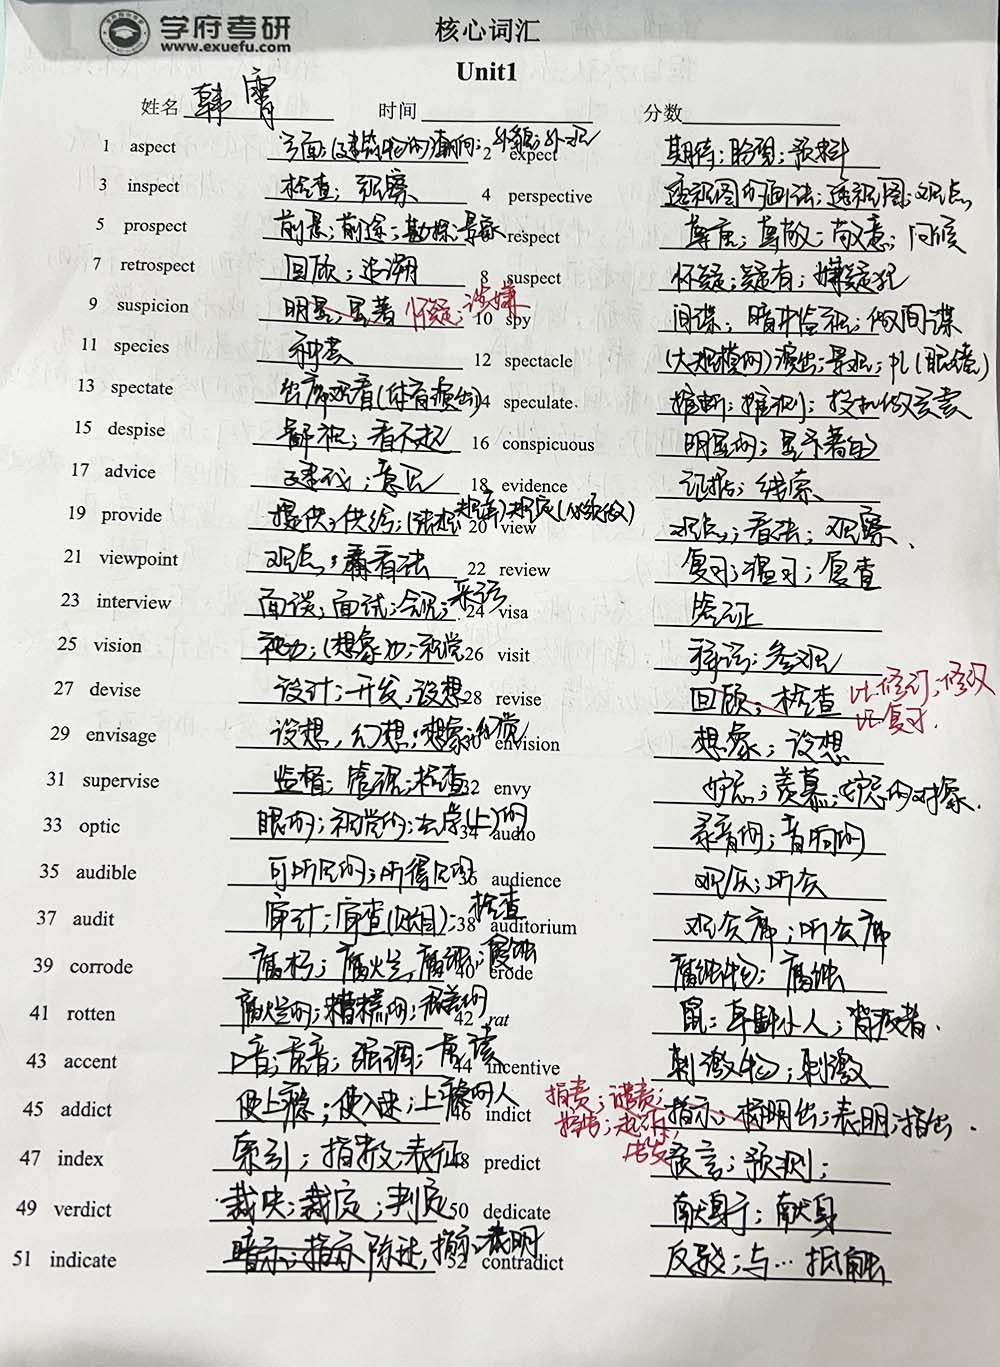 学府考研
www.exuefu.com
核心词汇
Unit1
姓名 韩 时间 分数
1 aspect 方面;(建筑物的)朝向;外貌;外观 2 expect 期待;盼望;预料
3 inspect 检查;视察 4 perspective 透视图的画法;透视图;观点
5 prospect 前景;前途;勘探;景象 respect 尊重;尊敬;敬意;问候
7 retrospect 回顾;追溯 8 suspect 怀疑;疑有;嫌疑犯
9 suspicion 明显;显著 怀疑;涉嫌 10 spy 间谍;暗中监视;做间谍
11 species 种类 12 spectacle (大规模的)演出;景观;pl(眼镜)
13 spectate 出席观看(体育演出) 4 speculate. 推断;推测;投机做买卖
15 despise 鄙视;看不起 16 conspicuous 明显的;显著的
17 advice 建议;意见 18 evidence 证据;线索
19 provide 提供;供给;(法律规定)规定(必须做) 20 view 观点;看法;观察、
21 viewpoint 观点;看法 22 review 复习;温习;复查
23 interview 面谈;面试;会见;采访 24 visa 签证
25 vision 视力;(想象)力;视觉 26 visit 拜访;参观
27 devise 设计;开发;设想 28 revise 回顾;检查 vt.修订;修改
vi.复习.
29 envisage 设想,幻想;想象;幻觉 30 envision 想象;设想
31 supervise 监督;监视;检查 32 envy 妒忌;羡慕;妒忌的对象.
33 optic 眼的;视觉的;光学(上)的 34 audio 录音的;音响的
35 audible 可听见的;听得见的 36 audience 观众;听众
37 audit 审计;审查(账目);检查 38 auditorium 观众席;听众席
39 corrode 腐朽;腐烂,腐蚀;侵蚀 40 erode 腐蚀物;腐蚀
41 rotten 腐烂的;糟糕的; 42 rat 鼠;卑鄙小人;背叛者.
43 accent 口音;重音;强调;重读 44 incentive 刺激物;刺激
45 addict 使上瘾;使入迷;上瘾的人 46 indict 指责;谴责;
控告;起诉; 指示;标明出;表明;指出.
47 index 索引;指数;表征 48 predict 预言;预测;
49 verdict 裁决;裁定;判定 50 dedicate 献身于;献身
51 indicate 暗示;指示 陈述,指示;表明 52 contradict 反驳;与…抵触